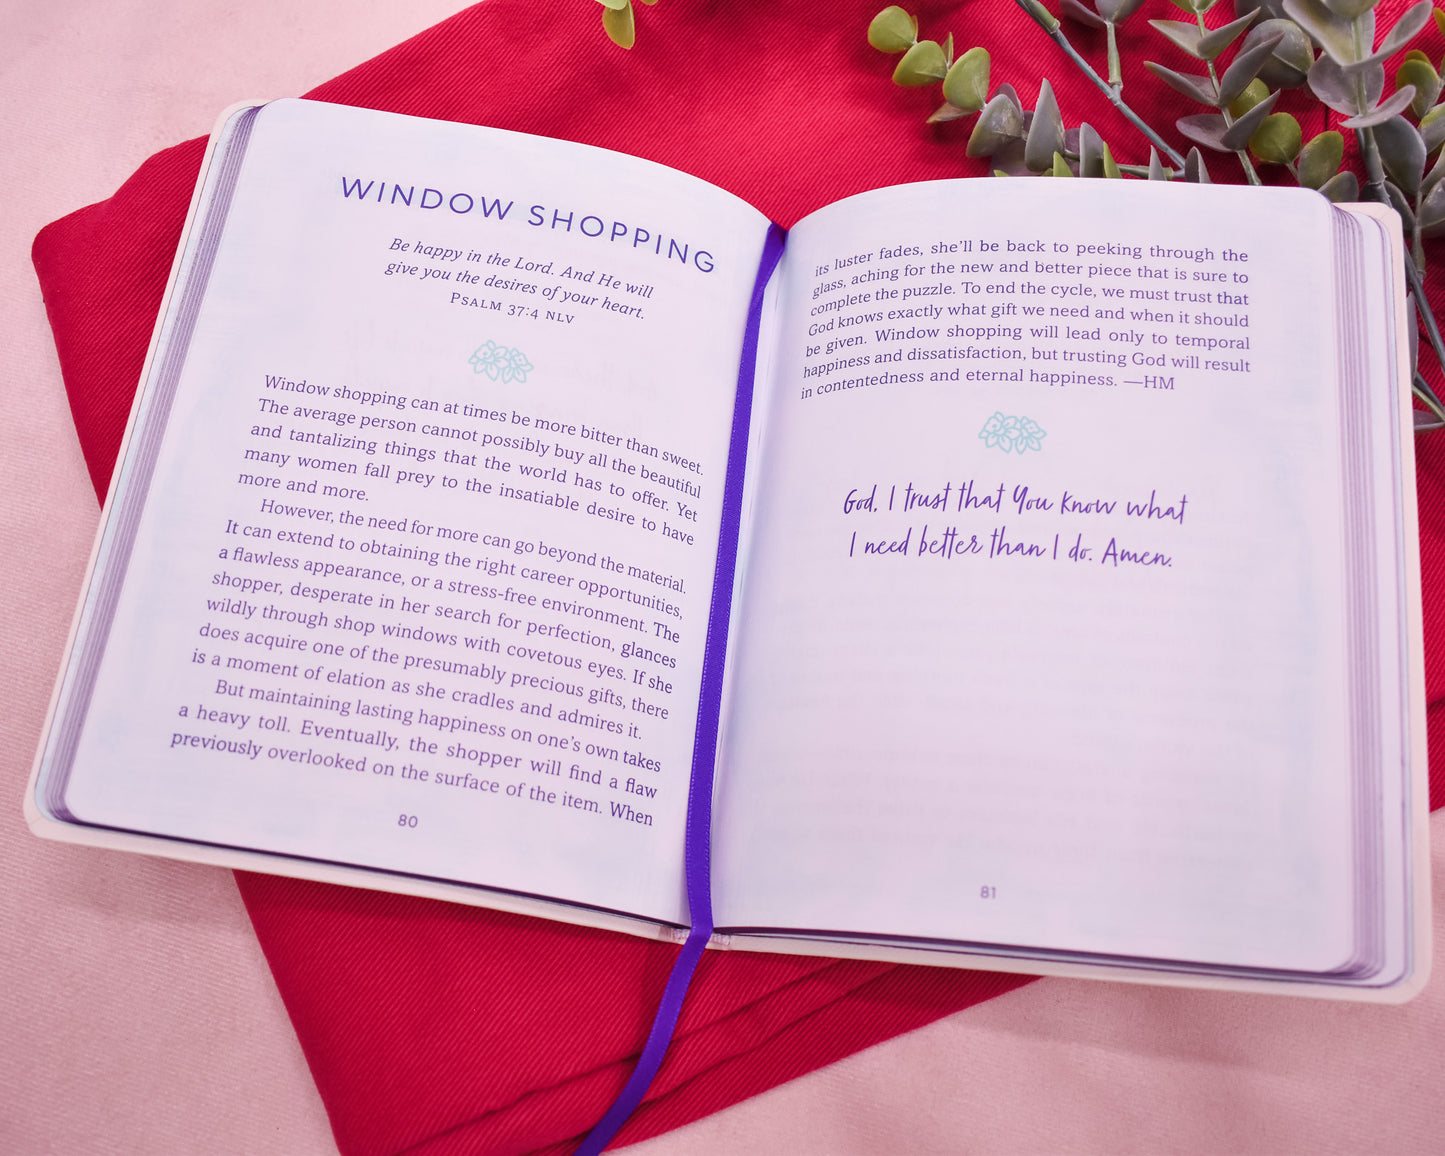 WINDOW SHOPPING
Be happy in the Lord. And He will
give you the desires of your heart.
Psalm 37:4 NLV
Window shopping can at times be more bitter than sweet.
The average person cannot possibly buy all the beautiful
and tantalizing things that the world has to offer. Yet
many women fall prey to the insatiable desire to have
more and more.
However, the need for more can go beyond the material.
It can extend to obtaining the right career opportunities,
a flawless appearance, or a stress-free environment. The
shopper, desperate in her search for perfection, glances
wildly through shop windows with covetous eyes. If she
does acquire one of the presumably precious gifts, there
is a moment of elation as she cradles and admires it.
But maintaining lasting happiness on one's own takes
a heavy toll. Eventually, the shopper will find a flaw
previously overlooked on the surface of the item. When
80
its luster fades, she'll be back to peeking through the
glass, aching for the new and better piece that is sure to
complete the puzzle. To end the cycle, we must trust that
God knows exactly what gift we need and when it should
be given. Window shopping will lead only to temporal
happiness and dissatisfaction, but trusting God will result
in contentedness and eternal happiness. —HM
God, I trust that You know what
I need better than I do. Amen.
81